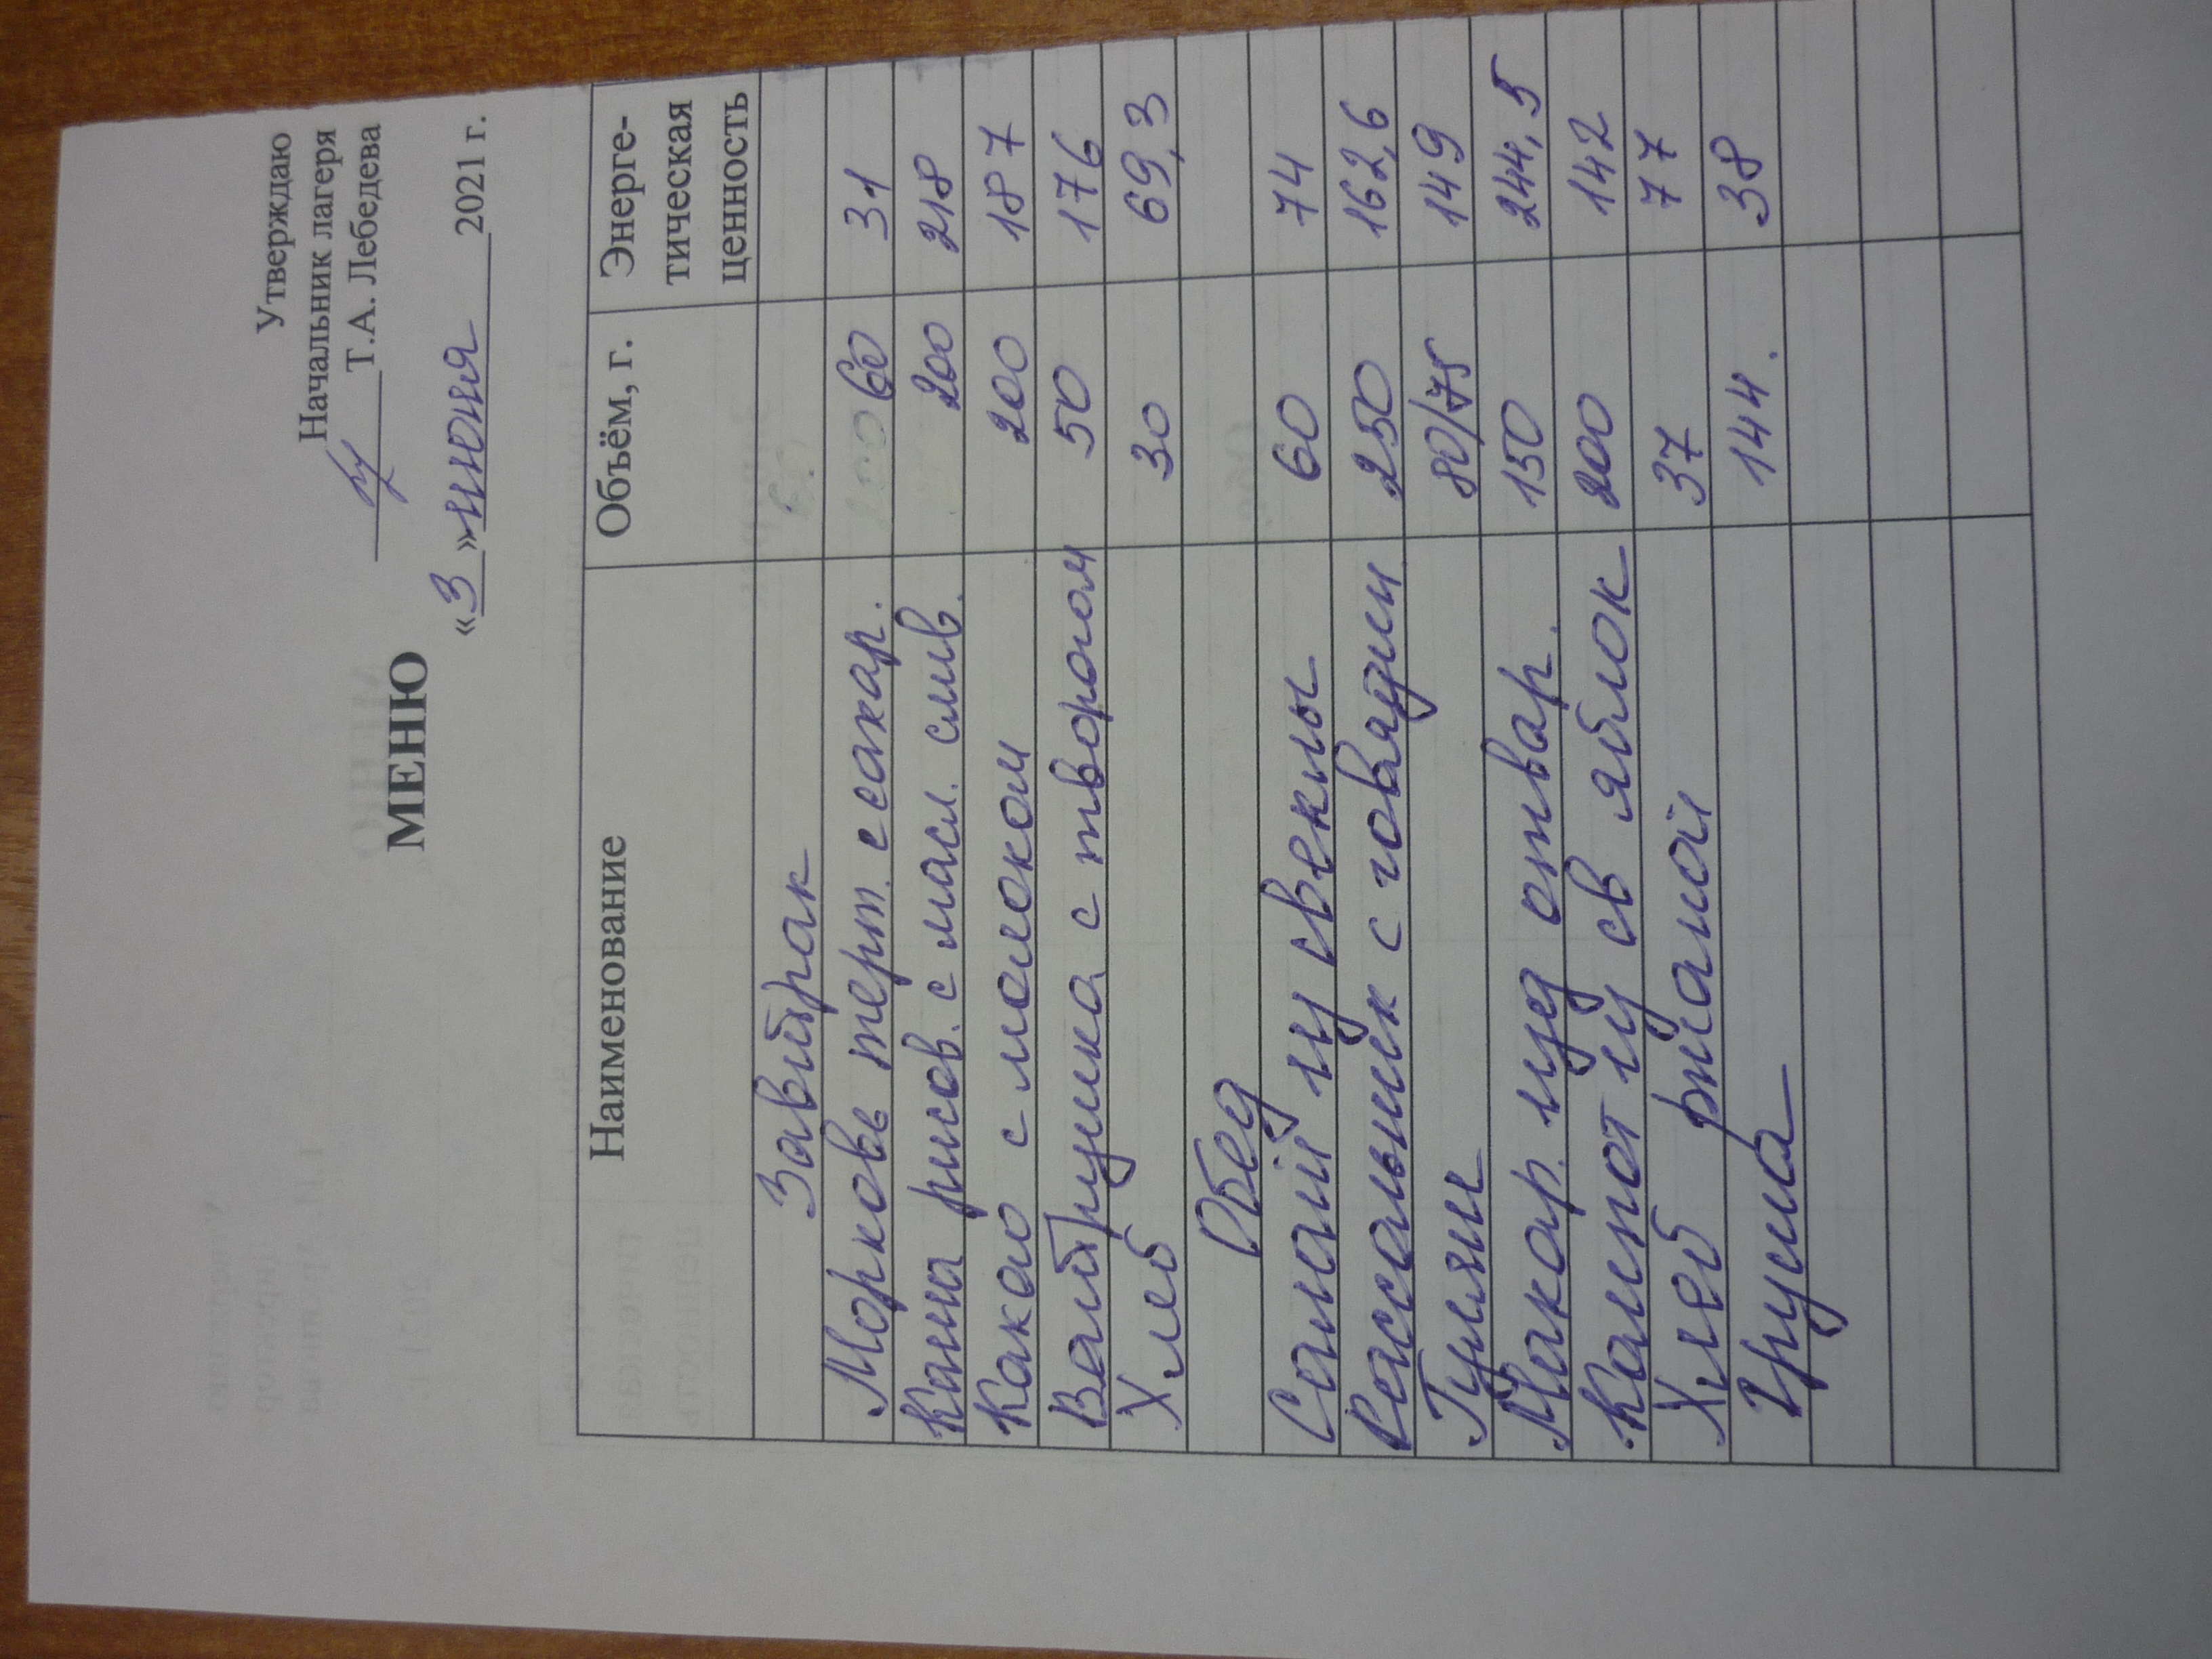 Утверждаю
Начальник лагеря
Т.А. Лебедева
МЕНЮ
«3» июня 2021 г.
Наименование Объём, г. Энерге-
тическая
ценность
Завтрак
Морковь терт. с сахар. 60 31
Каша рисов. с масл. слив. 200 218
Какао с молоком 200 187
Ватрушка с творогом 50 176
Хлеб 30 69,3
Обед
Салат из свеклы 60 74
Рассольник с говядин 250 162,6
Гуляш 80/75 149
Макар. изд отвар. 150 244,5
Компот из св яблок 200 142
Хлеб ржаной 37 77
Груша 144. 38